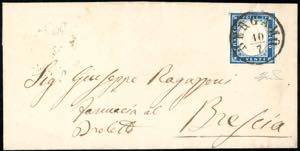 BERGAMO
10
7
Sig Giuseppe Ragazzoni
farmacia al
Broletto
Brescia